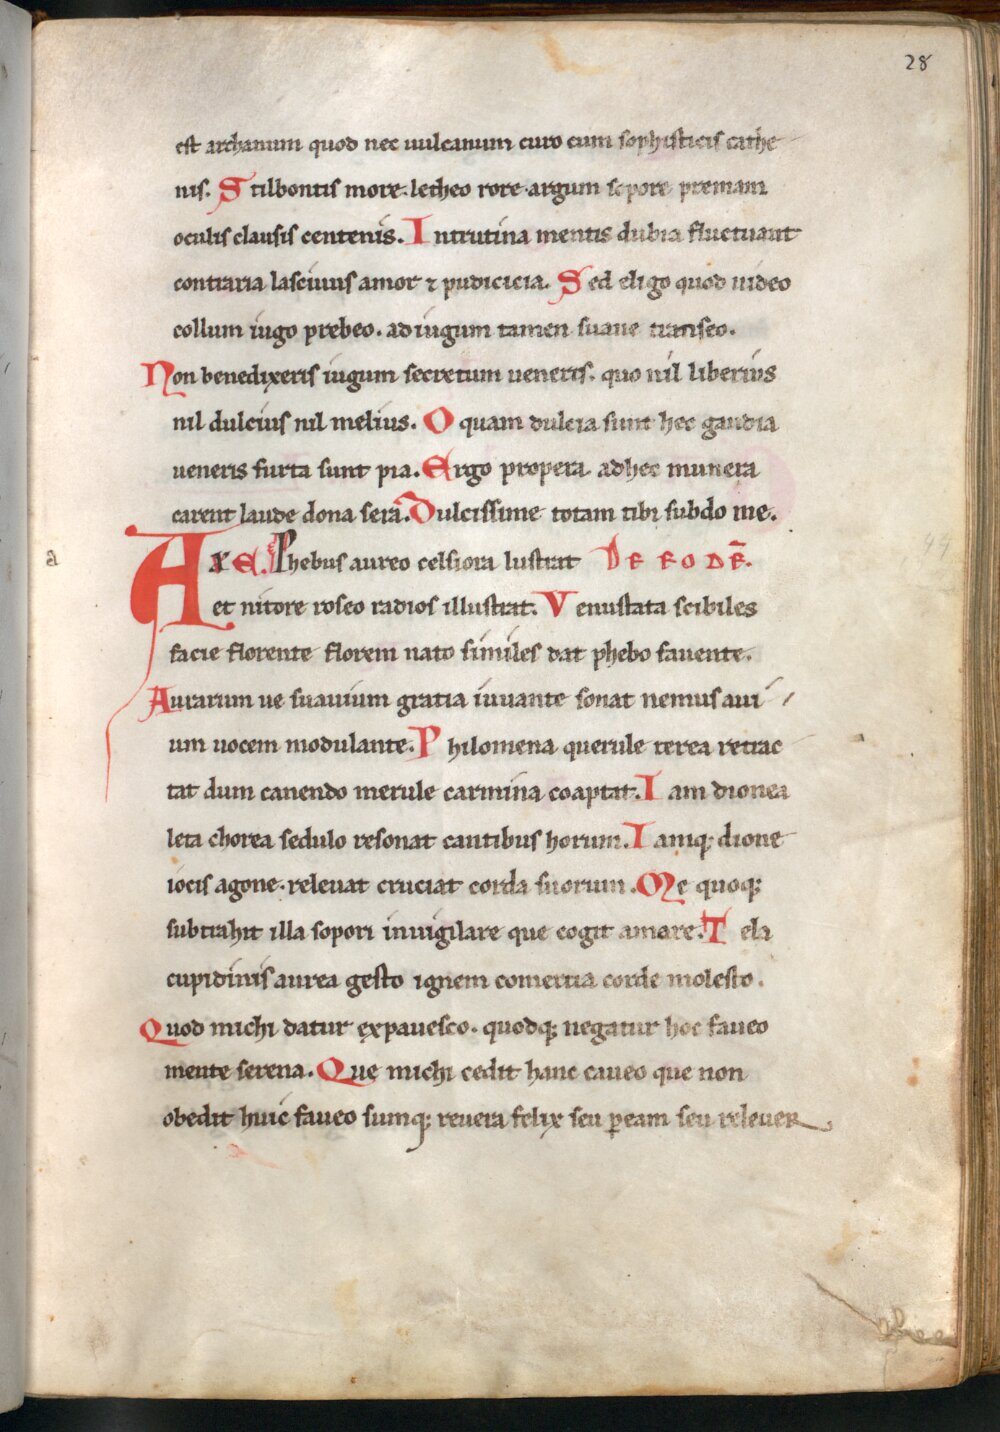 28
est archanum quod nec uulcanum curo cum sophisticis cathe
nis. Stilbontis more. letheo rore. argum sopore premam
oculis clausis centenis. Intrutina mentis dubia fluctuant
contraria lasciuus amor ⁊ pudicicia. Sed eligo quod uideo
collum iugo prebeo. ad iugum tamen suaue transeo.
Non benedixeris iugum secretum ueneris. quo nil liberius
nil dulcius nil melius. O quam dulcia sunt hec gaudia
ueneris furta sunt pia. Ergo propera adhec munera
carent laude dona sera. Dulcissime totam tibi subdo me.
a
AXE Phebus aureo celsiora lustrat
et nitore roseo radios illustrat. Venustata scibiles
facie florente florem nato similes dat phebo fauente.
Aurarum ue suauium gratia iuuante sonat nemus aui
um uocem modulante. Philomena querule terea retrac
tat dum canendo merule carmina coaptat. Iam dionea
leta chorea sedulo resonat cantibus horum. Iamq; dione
iocis agone. releuat cruciat corda suorum. Me quoq;
subtrahit illa sopori inuigilare que cogit amore. Tela
cupidinis aurea gesto ignem comertia corde molesto.
Quod michi datur expauesco. quodq; negatur hoc faueo
mente serena. Que michi cedit hanc caueo que non
obedit huic faueo sumq; reuera felix seu ꝑeam seu releuer